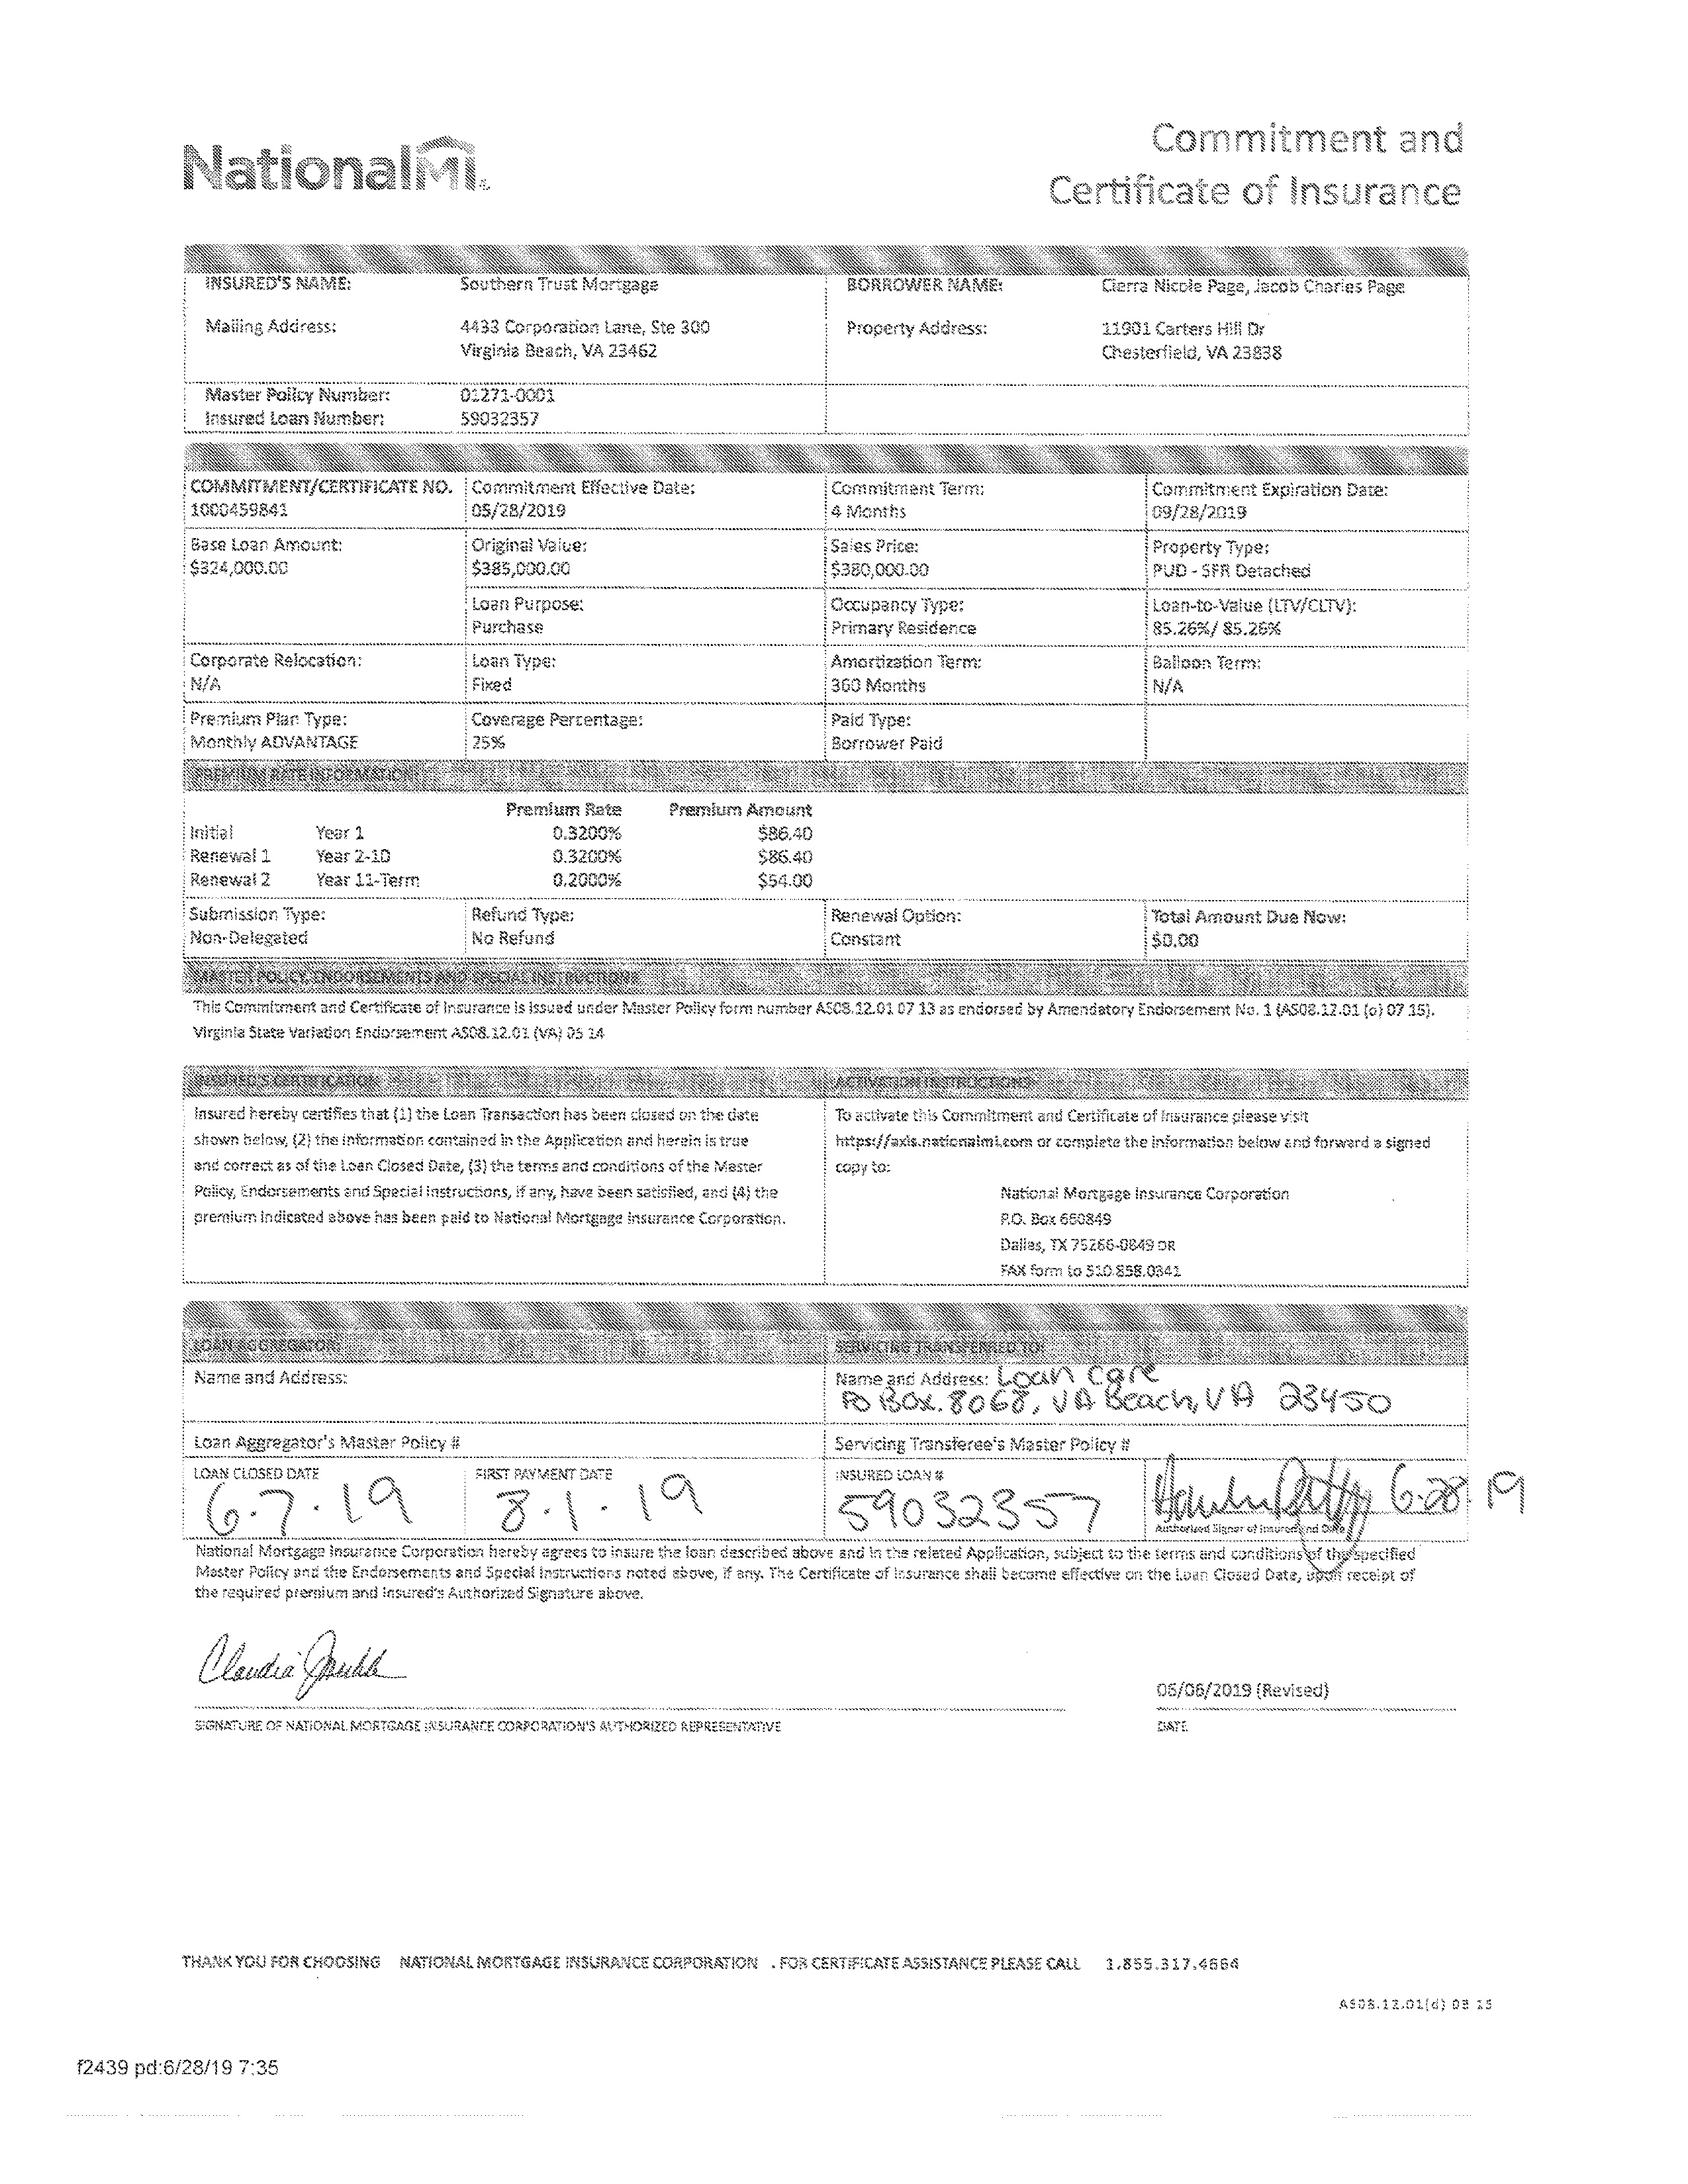 NationalMI
Commitment and
Certificate of Insurance
INSURED'S NAME: Southern Trust Mortgage BORROWER NAME: Cierra Nicole Page, Jacob Charles Page
Mailing Address: 4433 Corporation Lane, Ste 300 Property Address: 11901 Carters Hill Dr
Virginia Beach, VA 23462 Chesterfield, VA 23838
Master Policy Number: 01271-0001
Insured Loan Number: 59032357
COMMITMENT/CERTIFICATE NO. Commitment Effective Date: Commitment Term: Commitment Expiration Date:
1000459841 05/28/2019 4 Months 09/28/2019
Base Loan Amount: Original Value: Sales Price: Property Type:
$324,000.00 $385,000.00 $380,000.00 PUD - SFR Detached
Loan Purpose: Occupancy Type: Loan-to-Value (LTV/CLTV):
Purchase Primary Residence 85.26%/ 85.26%
Corporate Relocation: Loan Type: Amortization Term: Balloon Term:
N/A Fixed 360 Months N/A
Premium Plan Type: Coverage Percentage: Paid Type:
Monthly ADVANTAGE 25% Borrower Paid
PREMIUM RATE INFORMATION:
Premium Rate Premium Amount
Initial Year 1 0.3200% $86.40
Renewal 1 Year 2-10 0.3200% $86.40
Renewal 2 Year 11-Term 0.2000% $54.00
Submission Type: Refund Type: Renewal Option: Total Amount Due Now:
Non-Delegated No Refund Constant $0.00
MASTER POLICY, ENDORSEMENTS AND SPECIAL INSTRUCTIONS:
This Commitment and Certificate of Insurance is issued under Master Policy form number AS08.12.01 07 13 as endorsed by Amendatory Endorsement No. 1 (AS08.12.01 (o) 07 15).
Virginia State Variation Endorsement AS08.12.01 (VA) 05 14
INSURED'S CERTIFICATION: ACTIVATION INSTRUCTIONS:
Insured hereby certifies that (1) the Loan Transaction has been closed on the date
shown below, (2) the information contained in the Application and herein is true
and correct as of the Loan Closed Date, (3) the terms and conditions of the Master
Policy, Endorsements and Special Instructions, if any, have been satisfied, and (4) the
premium indicated above has been paid to National Mortgage Insurance Corporation.
To activate this Commitment and Certificate of Insurance please visit
https://axis.nationalmi.com or complete the information below and forward a signed
copy to:
National Mortgage Insurance Corporation
P.O. Box 660849
Dallas, TX 75266-0849 OR
FAX form to 510.858.0341
LOAN AGGREGATOR: SERVICING TRANSFERRED TO:
Name and Address: Name and Address: Loan Care
PO BOX. 8068, VA Beach, VA 23450
Loan Aggregator's Master Policy # Servicing Transferee's Master Policy #
LOAN CLOSED DATE FIRST PAYMENT DATE INSURED LOAN #
6.7.19 8.1.19 59032357 6-28-19
Authorized Signer of Insured and Date
National Mortgage Insurance Corporation hereby agrees to insure the loan described above and in the related Application, subject to the terms and conditions of the specified
Master Policy and the Endorsements and Special Instructions noted above, if any. The Certificate of Insurance shall become effective on the Loan Closed Date, upon receipt of
the required premium and Insured's Authorized Signature above.
Claudia
06/06/2019 (Revised)
SIGNATURE OF NATIONAL MORTGAGE INSURANCE CORPORATION'S AUTHORIZED REPRESENTATIVE DATE
THANK YOU FOR CHOOSING NATIONAL MORTGAGE INSURANCE CORPORATION . FOR CERTIFICATE ASSISTANCE PLEASE CALL 1.855.317.4664
AS08.12.01(d) 08 15
f2439 pd:6/28/19 7:35